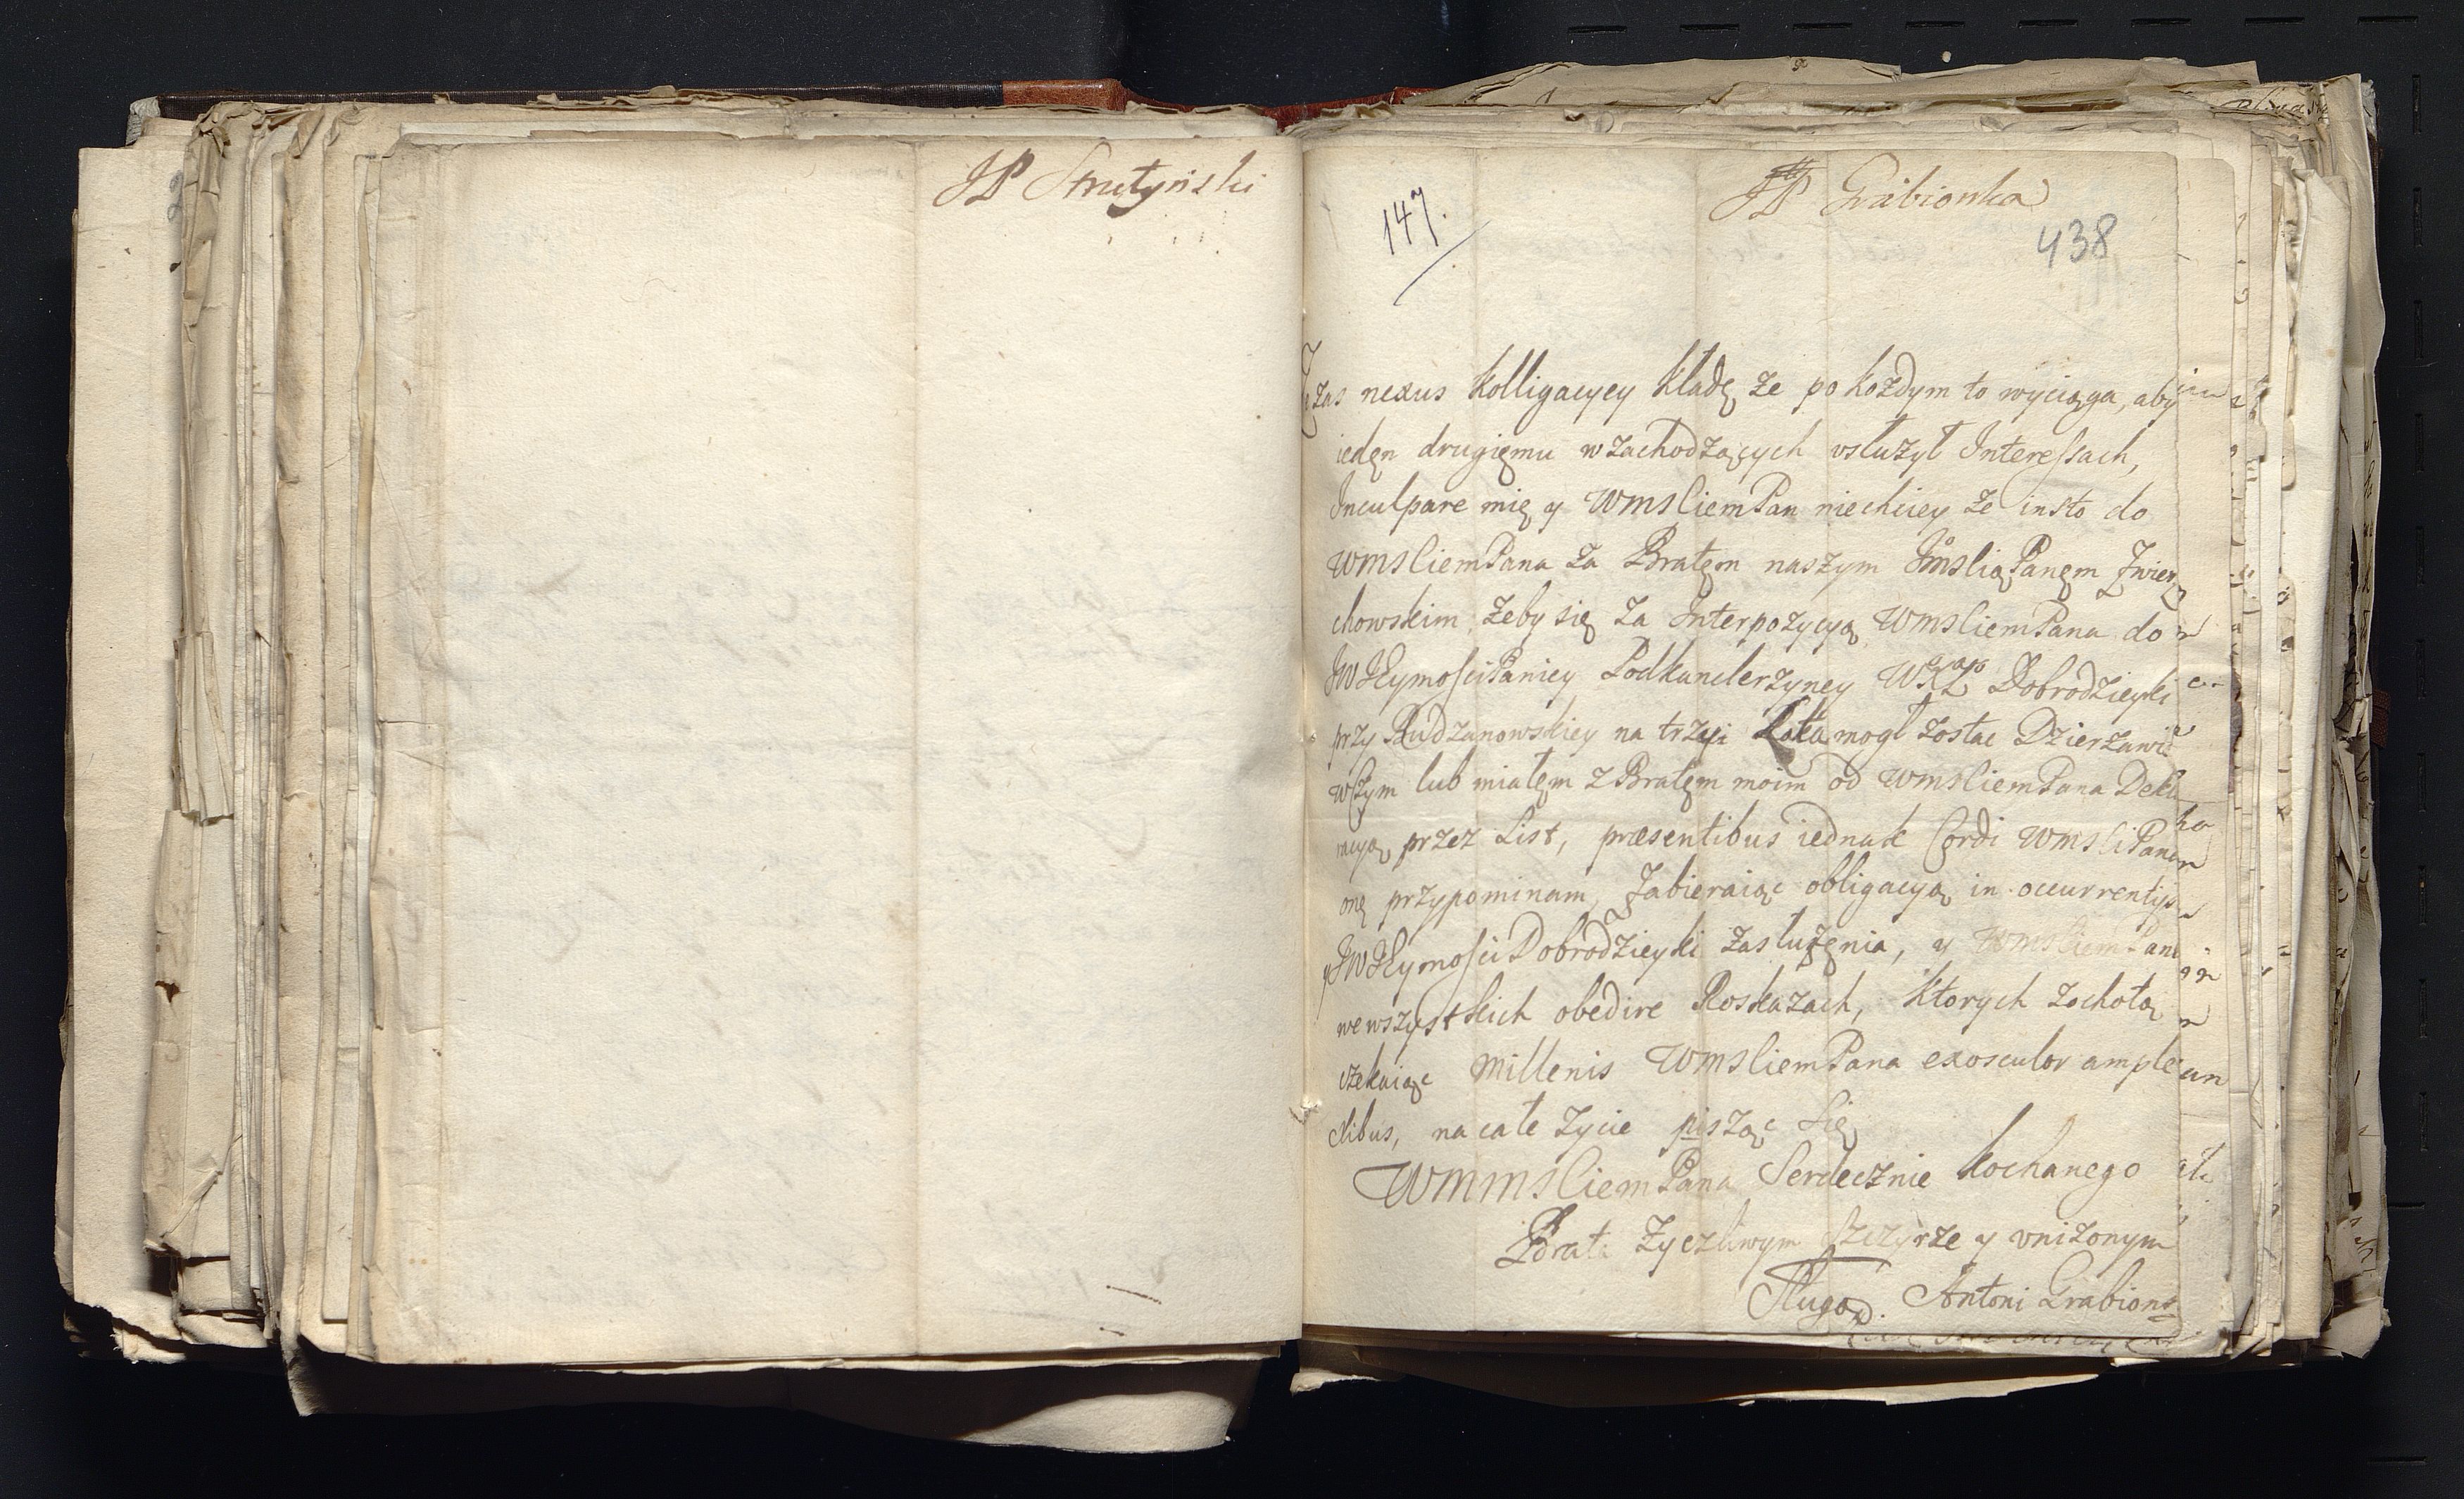 JP Strutynski
JP Grabionka
147.
438
zas nexus Kolligacyey kładę ze po kozdym to wyciąga, aby
ieden drugięmu w zachodzących vsłuzył Interessach,
Inculpare mię y WmsCiemPan niechciey ze insto do
WmsCiemPana za Bratęm naszym JmsciąPanęm Zwier
chowskim, zeby się za Interpozycyą WmsCiemPana do
JWJEymosciPaniey Podkanclerzyney WXL Dobrodzieyki
przy Rudzanowskiey na trzyi Lata mogł zostac Dzierzawi
wszym lub miałęm z Bratęm moim od WmsCiemPana Dekla
racyą przez List, præsentibus iednak Cordi WmsCiPana
onę przypominam, Zabieraiąc obligacyą in occurrentijs
y JWJEymosci Dobrodzieyki zasłuzęnia, y WmsCiemPana
wewszystkich obedire Roskazach, ktorych zochotą
czekaiąc Millenis WmsCiemPana exosculor ample
xibus, na całe zycie pisząc się
WmmsCiemPana Serdecznie kochanego
Brata zyczliwym szczyrze y vnizonym
Sługą. Antoni Grabion